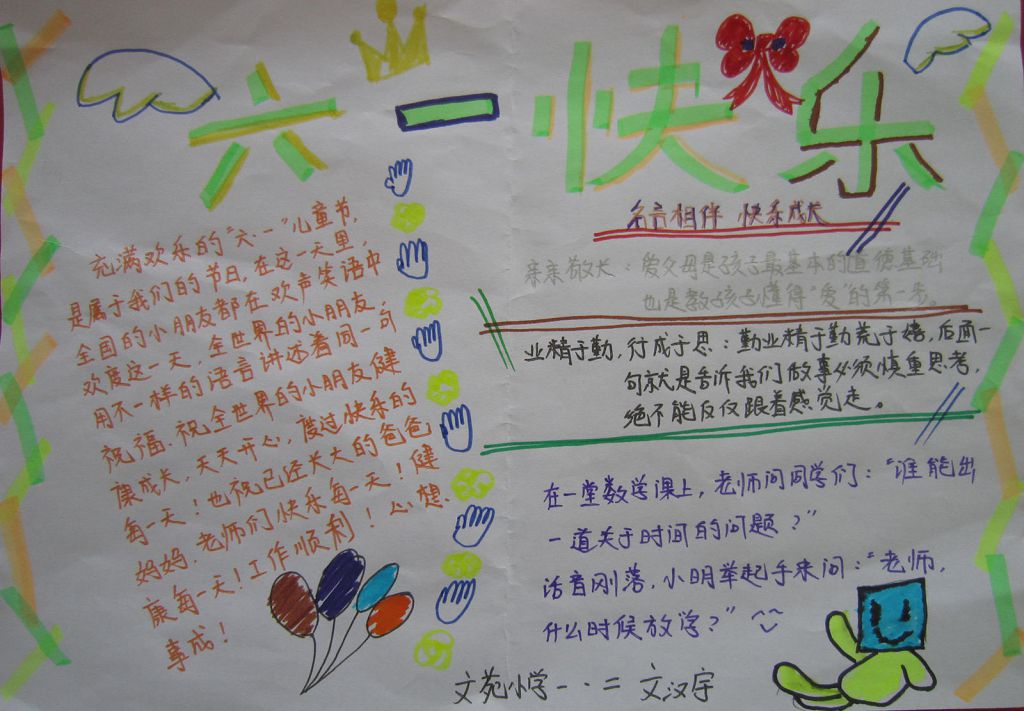 六一快乐
充满欢乐的“六·一”儿童节,
是属于我们的节日,在这一天里,
全国的小朋友都在欢声笑语中
欢度这一天,全世界的小朋友,
用不一样的语言讲述着同一句
祝福.祝全世界的小朋友健
康成长,天天开心,度过快乐的
每一天!也祝已经长大的爸爸
妈妈.老师们快乐每一天!健
康每一天!工作顺利!心想
事成!
名言相伴 快乐成长
亲亲敬长:爱父母是孩子最基本的道德基础
也是教孩子懂得“爱”的第一步。
业精于勤,行成于思:勤业精于勤荒于嬉,后面一
句就是告诉我们做事必须慎重思考,
绝不能仅仅跟着感觉走。
在一堂数学课上,老师问同学们:“谁能出
一道关于时间的问题?”
话音刚落,小明举起手来问:“老师,
什么时候放学?”
文苑小学一·二 文汉宇